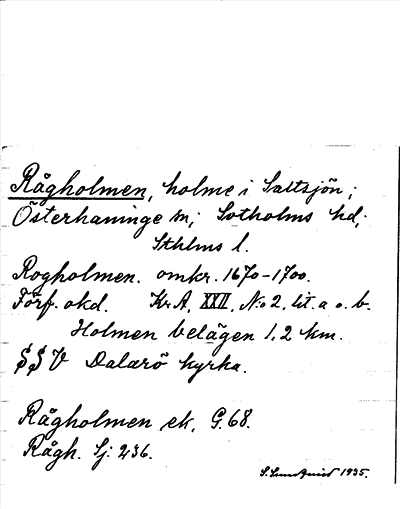 Rågholmen, holme i Saltsjön;
Österhaninge sn; Sotholms hd;
Sthlms l.
Rogholmen. omkr. 1670-1700.
Förf. okd. Kr A, XXII, No 2, lit. a o. b.
Holmen belägen 1,2 km.
SSV Dalarö kyrka.
Rågholmen ek. G. 68.
Rågh. Sj: 236.
S. Lundquist 1935.